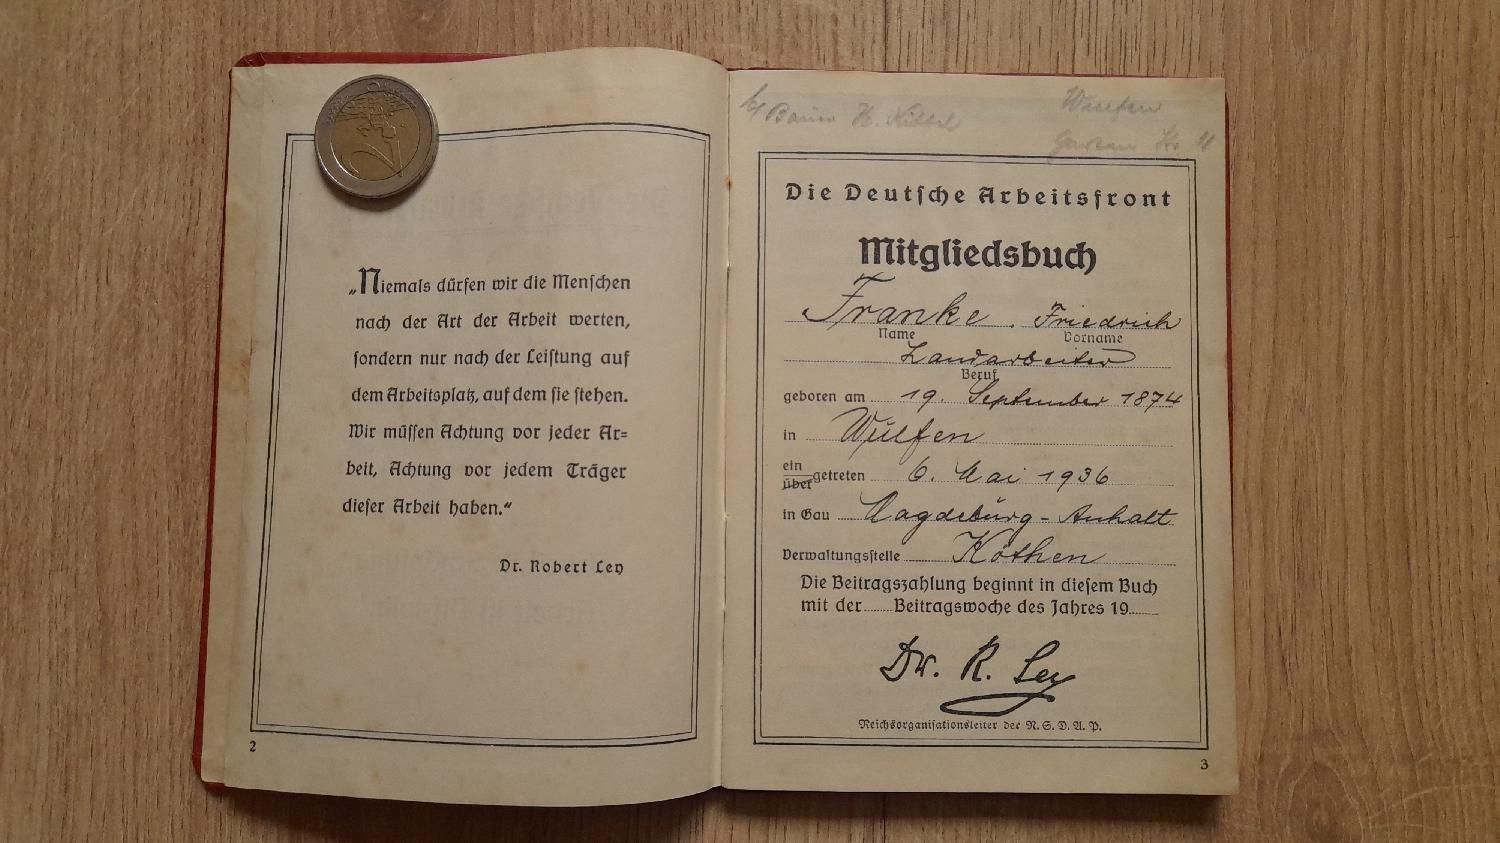 „Niemals dürfen wir die Menſchen
nach der Art der Arbeit werten,
ſondern nur nach der Leiſtung auf
dem Arbeitsplatz, auf dem ſie ſtehen.
Wir müſſen Achtung vor jeder Ar=
beit, Achtung vor jedem Träger
dieſer Arbeit haben.“
Dr. Robert Ley
2
H. Wulfen
Die Deutſche Arbeitsfront
Mitgliedsbuch
Franke. Friedrich
Name Vorname
Landarbeiter
Beruf
geboren am 19. September 1874
in Wülfen
ein
über getreten 6. Mai 1936
in Gau Magdeburg-Anhalt
Verwaltungsſtelle Köthen
Die Beitragszahlung beginnt in dieſem Buch
mit der ...... Beitragswoche des Jahres 19......
Dr. R. Ley
Reichsorganiſationsleiter der N.S.D.A.P.
3